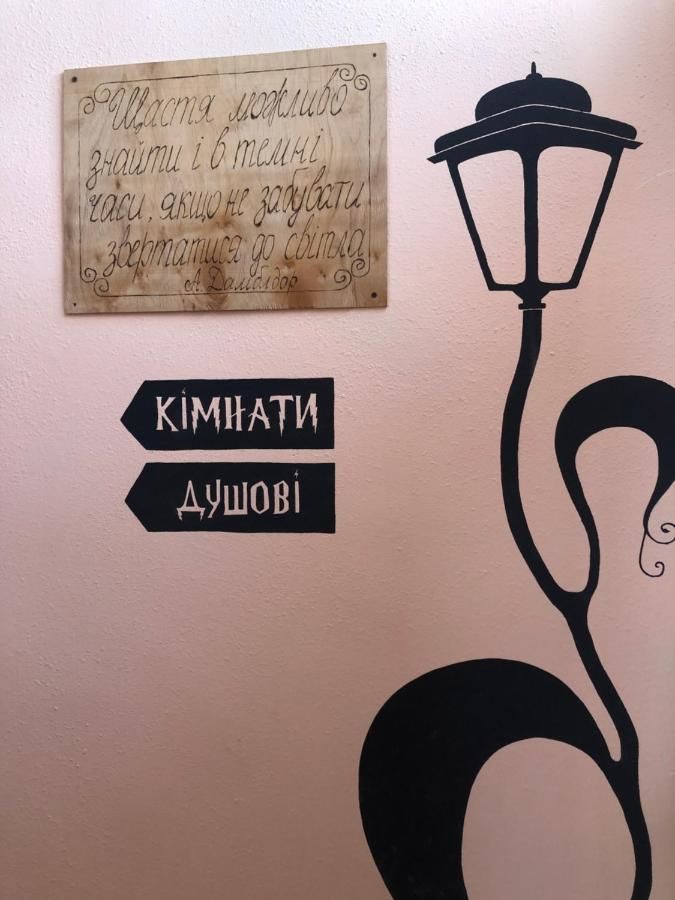 Щастя можливо
знайти і в темні
часи, якщо не забувати
звертатися до світла
А. Дамблдор
КІМНАТИ
ДУШОВІ